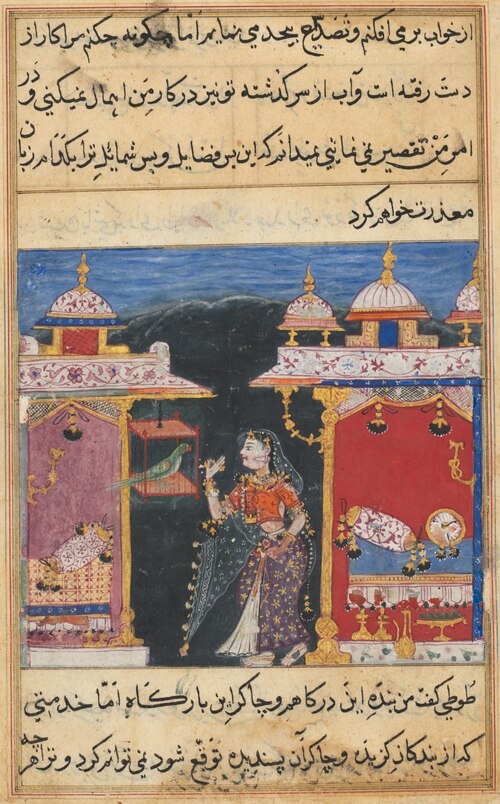 از خواب برمی افکنم و تصدیع بیحد می نمایم اما چگونه چکنم مرا کار از
دست رفته است و آب از سر گذشته تو نیز در کار من اهمال نمیکنی و در
امر من تقصیر نمی نمائی نمیدانم که این بس فضایل و بس شمایل ترا بکدام زبان
معذرت خواهم کرد
طوطی گفت من بنده این درگاهم و چاکر این بارگاه اما خدمتی
که از بندگان گزیده و چاکران پسندیده توقع شود نمی توانم کرد و ترا هر چه